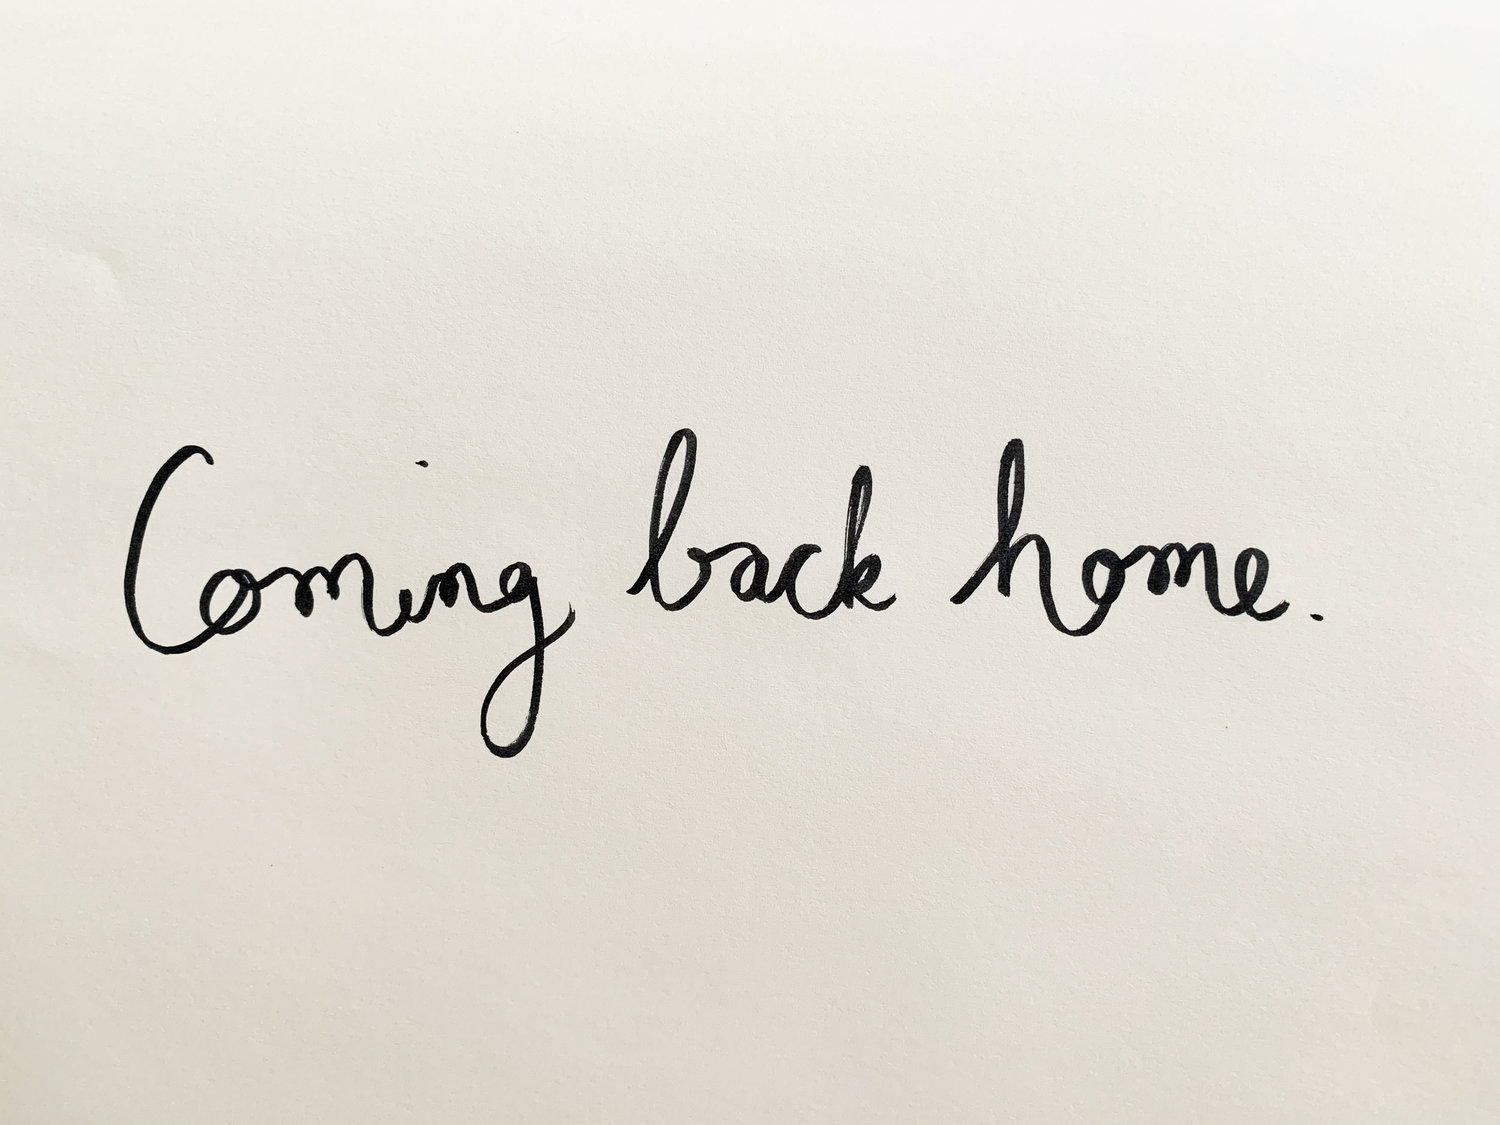 Coming back home.